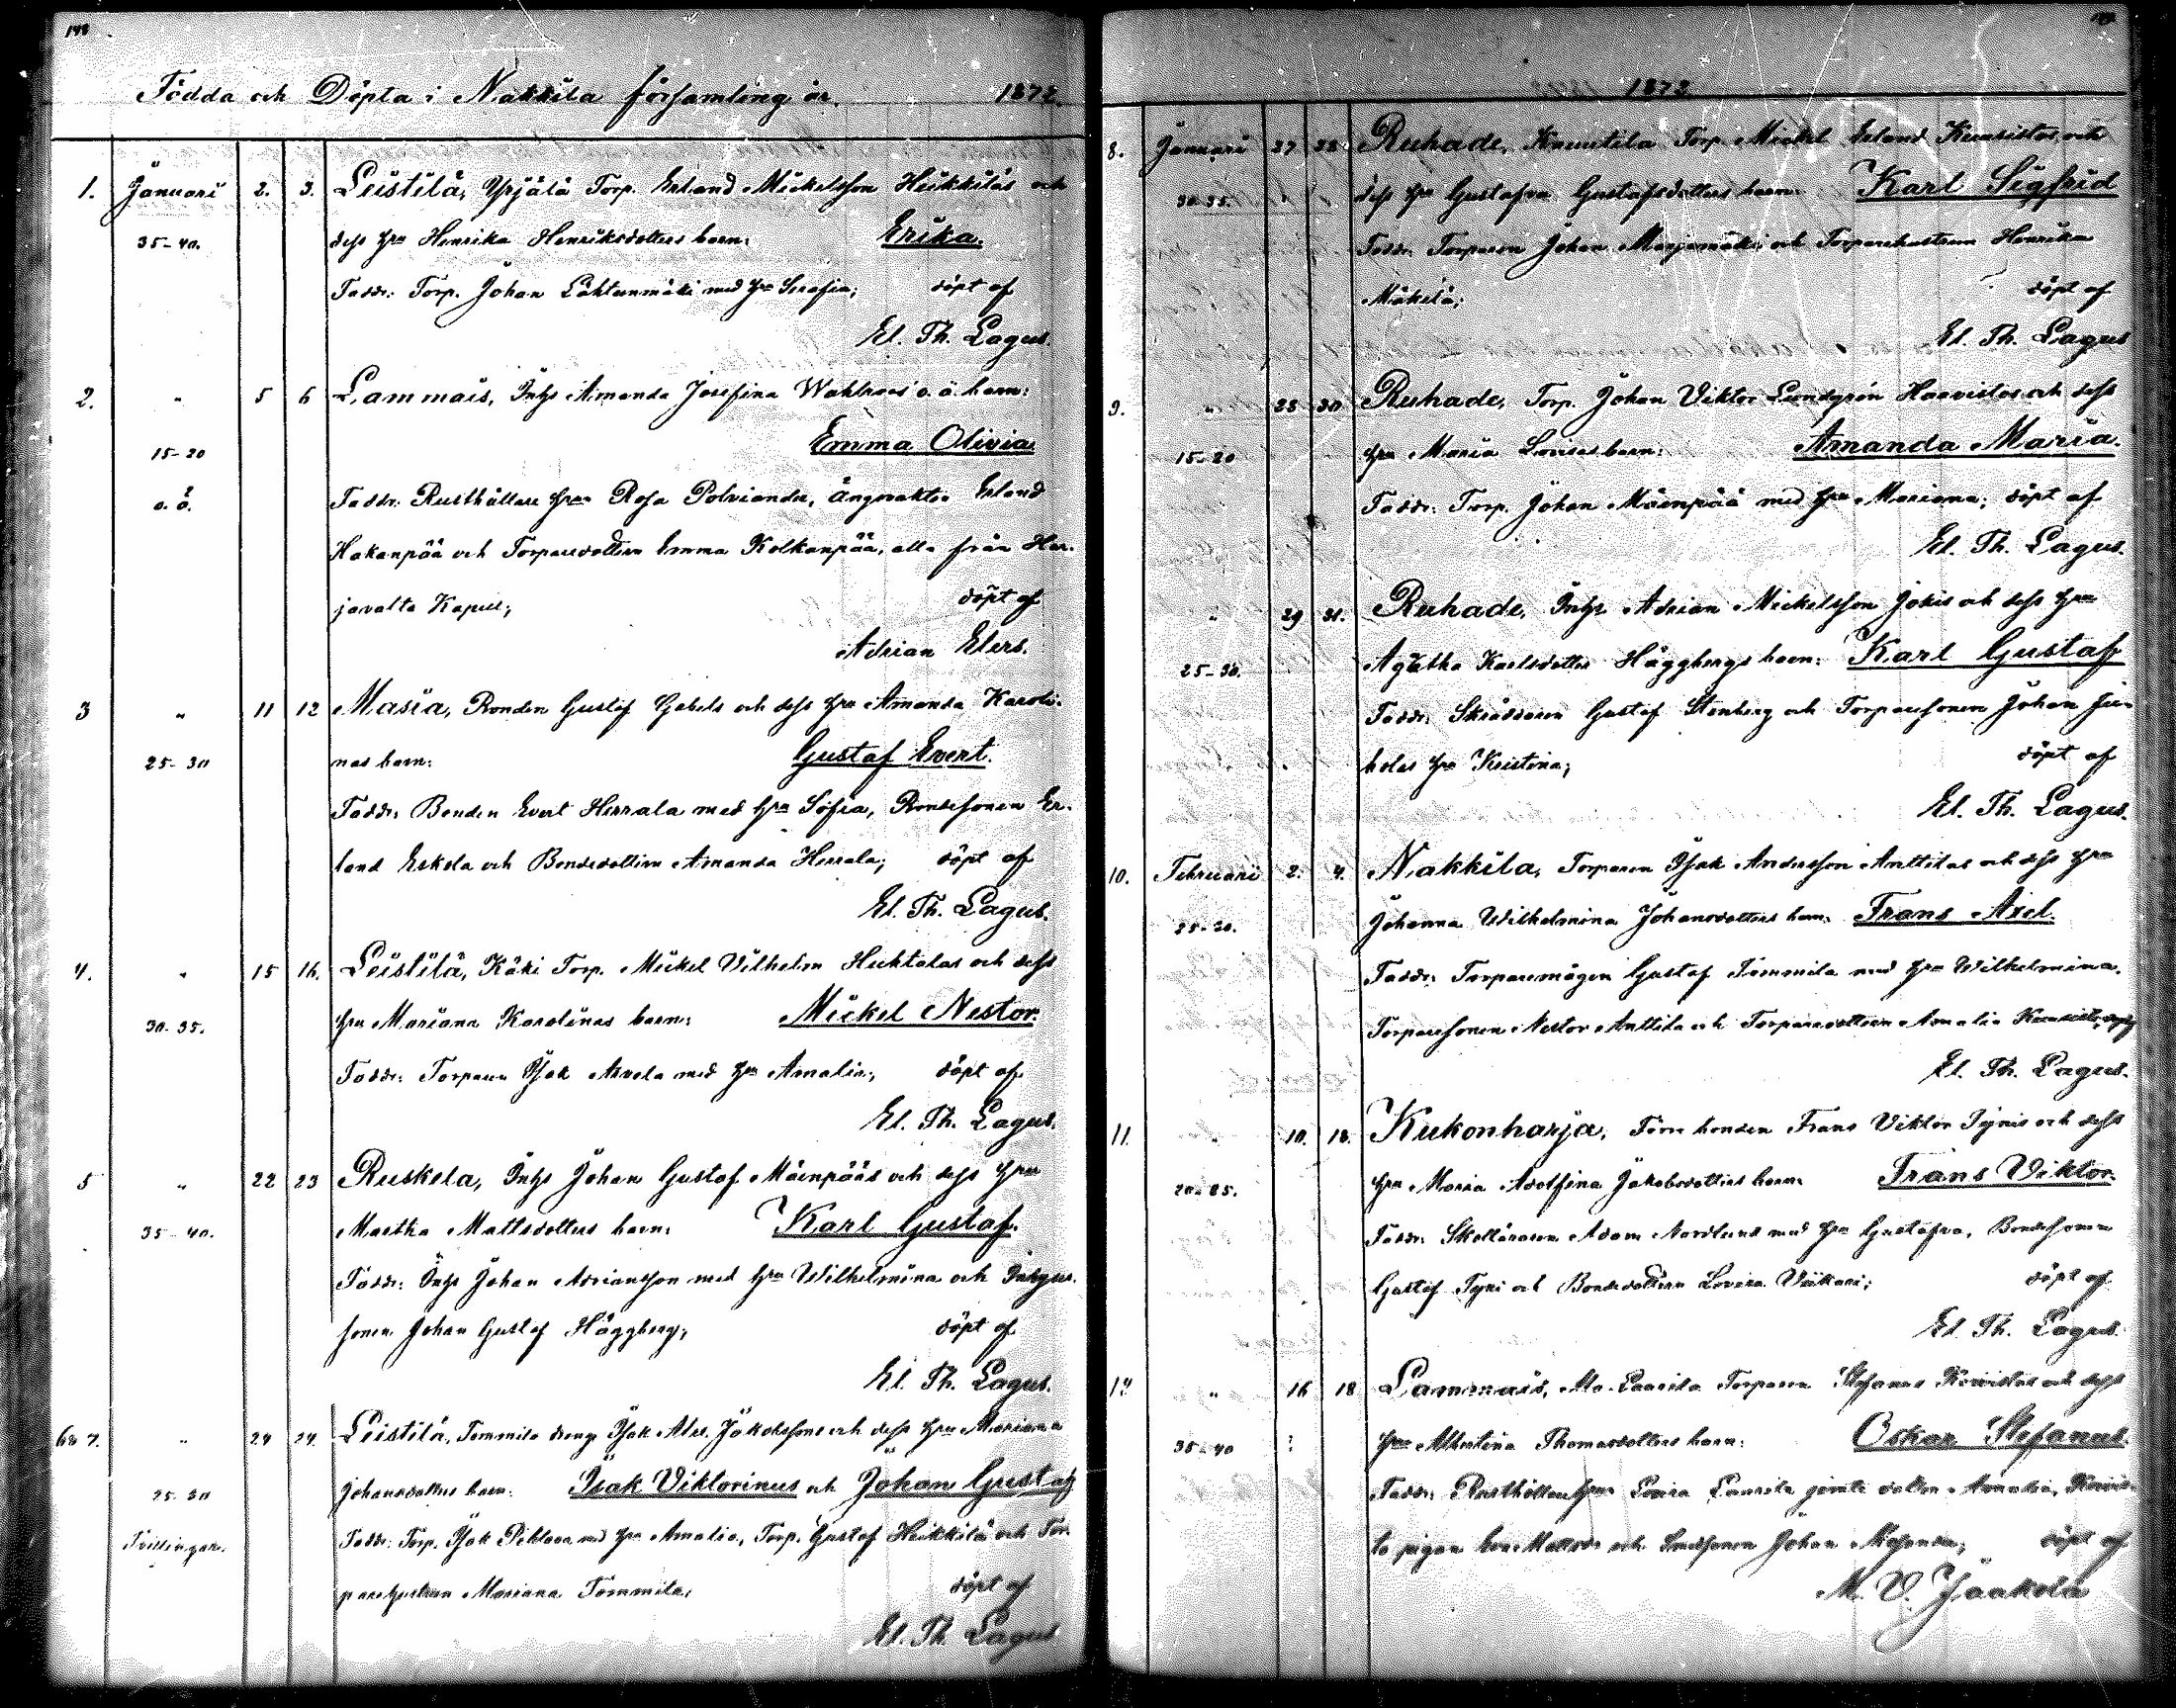 148
Födda och Döpta i Nakkila församling år 1872.
1. Januari 2. 3. Leistilä, Yrjälä Torp. Erland Mickelsson Heikkiläs och
35-40. dess hru Henrika Henriksdotters barn: Erika.
Faddr: Torp. Johan Lähteenmäki med hru Serafia; döpt af
El. Th. Lagus.
2. " 5 6 Lammais, Inhs Amanda Josefina Wahlroos' o. ä. barn:
15-20 Emma Olivia
o. ä. Faddr: Rusthållare hrun Rosa Polviander, ängvaktar Erland
Hakanpää och Torparedottern Emma Kolkanpää, alla från Har-
javalta Kapell; döpt af
Adrian Elers.
3 " 11 12 Masia, Bonden Gustaf Gabels och dess hru Amanda Karoli-
25-30 nas barn: Gustaf Evert.
Faddr: Bonden Evert Herrala med hru Sofia, Bondesonen Er-
land Eskola och Bondedottern Amanda Herrala; döpt af
El. Th. Lagus.
4. " 15 16. Leistilä, Käki Torp. Mickel Vilhelm Huhtalas och dess
30-35. hru Mariana Karolinas barn: Mickel Nestor.
Faddr: Torparen Isak Arvela med hru Amalia; döpt af
El. Th. Lagus.
5 " 22 23 Ruskela, Inhs Johan Gustaf Mäenpääs och dess hru
35-40. Martha Mattsdotters barn: Karl Gustaf.
Faddr: Inhs Johan Adriansson med hru Wilhelmina och Inhyses-
sonen Johan Gustaf Häggberg; döpt af
El. Th. Lagus.
6 & 7. " 24 24. Leistilä, Tommila dräng Isak Alex. Jakobssons och dess hru Mariana
25-30 Johansdotters barn: Isak Viktorinus och Johan Gustaf
Tvillingar. Faddr: Torp. Isak Pihlava med hru Amalia, Torp. Gustaf Heikkilä och Tor-
parehustrun Mariana Tommila; döpt af
El. Th. Lagus
1872
8. Januari 27 28 Ruhade, Knuutila Torp. Mickel Erland Kuusistos och
30-35. dess hru Gustafva Gustafsdotters barn: Karl Sigfrid
Faddr: Torparen Johan Marjamäki och Torparehustrun Henrika
Mäkelä; döpt af
El. Th. Lagus
9. " 28 30 Ruhade, Torp. Johan Viktor Lundgrén Haavistos och dess
15-20 hru Maria Lovisas barn: Amanda Maria.
Faddr: Torp. Johan Mäenpää med hru Mariana; döpt af
El. Th. Lagus.
" 29 31. Ruhade, Inhs Adrian Mickelsson Jokis och dess hru
25-30. Agatha Karlsdotter Häggbergs barn: Karl Gustaf
Faddr: Skräddaren Gustaf Stenberg och Torparesonen Johan Juu-
holas hru Kristina; döpt af
El. Th. Lagus.
10. Februari 2. 4. Nakkila, Torparen Isak Andersson Anttilas och dess hru
25-30. Johanna Wilhelmina Johansdotters barn: Frans Axel.
Faddr: Torparemågen Gustaf Tommila med hru Wilhelmina,
Torparesonen Nestor Anttila och Torparedottern Amalia
El. Th. Lagus.
11. " 10. 18. Kukonharja, Förre bonden Frans Viktor Tynis och dess
hru Maria Adolfina Jakobsdotters barn: Frans Viktor.
Faddr: Skolläraren Adam Nordlund med hru Gustafva, Bondesonen
Gustaf Tyni och Bondedottern Lovisa Viikari; döpt af
El. Th. Lagus.
12 " 16 18 Lammais, Torparen Stefanus Koivistos och dess
35-40 hru Albertina Thomasdotters barn: Oskar Stefanus.
Faddr: Rusthållarehrun Lovisa Laurila jemte dotter Amalia, Koivis-
to pigan Eva Mattsdr och Johan; döpt af
M. V. Jaakola